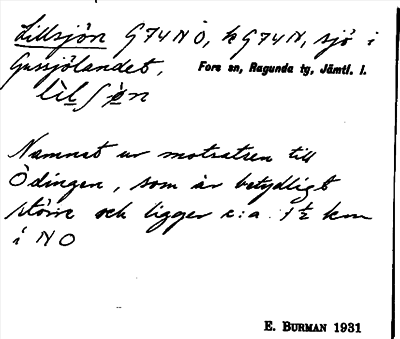 Lillsjön G74NÖ, k G74N, sjö i
Gussjölandet, Fors sn, Ragunda tg, Jämtl. l.
Namnet ur motsatsen till
Ödingen, som är betydligt
större och ligger c:a 1½ km
i NO
E. BURMAN 1931